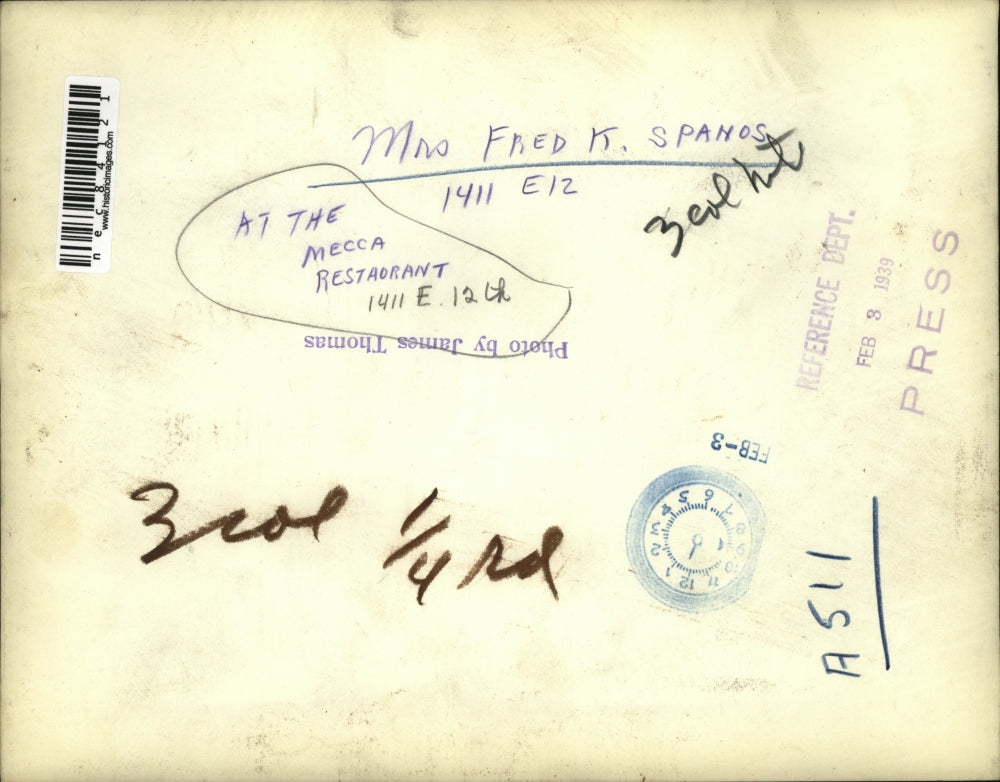 Mrs FRED K. SPANOS
1411 E12
AT THE
MECCA
RESTAURANT
1411 E. 12th
3 col
Photo by James Thomas
REFERENCE DEPT.
FEB 3 1939
PRESS
FEB-3
1 2 3 4 5 6 7 8 9 10 11 12
3 col 1/4 rd
A511
nec84121
www.historicimages.com